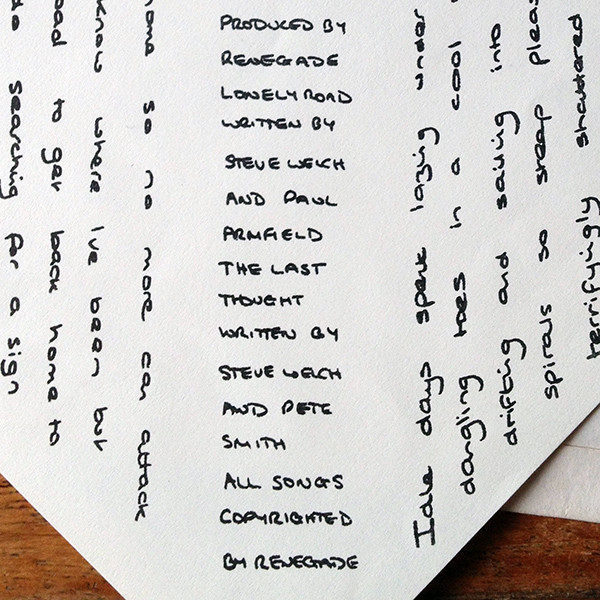 so no more can attack
know where I've been but
to get back home to
searching for a sign
PRODUCED BY
RENEGADE
LONELY ROAD
WRITTEN BY
STEVE WELCH
AND PAUL
ARMFIELD
THE LAST
THOUGHT
WRITTEN BY
STEVE WELCH
AND PETE
SMITH
ALL SONGS
COPYRIGHTED
BY RENEGADE
Idle days spent lazing under
dangling toes in a cool
drifting and sailing into
spirals so steep
terrifyingly shattered